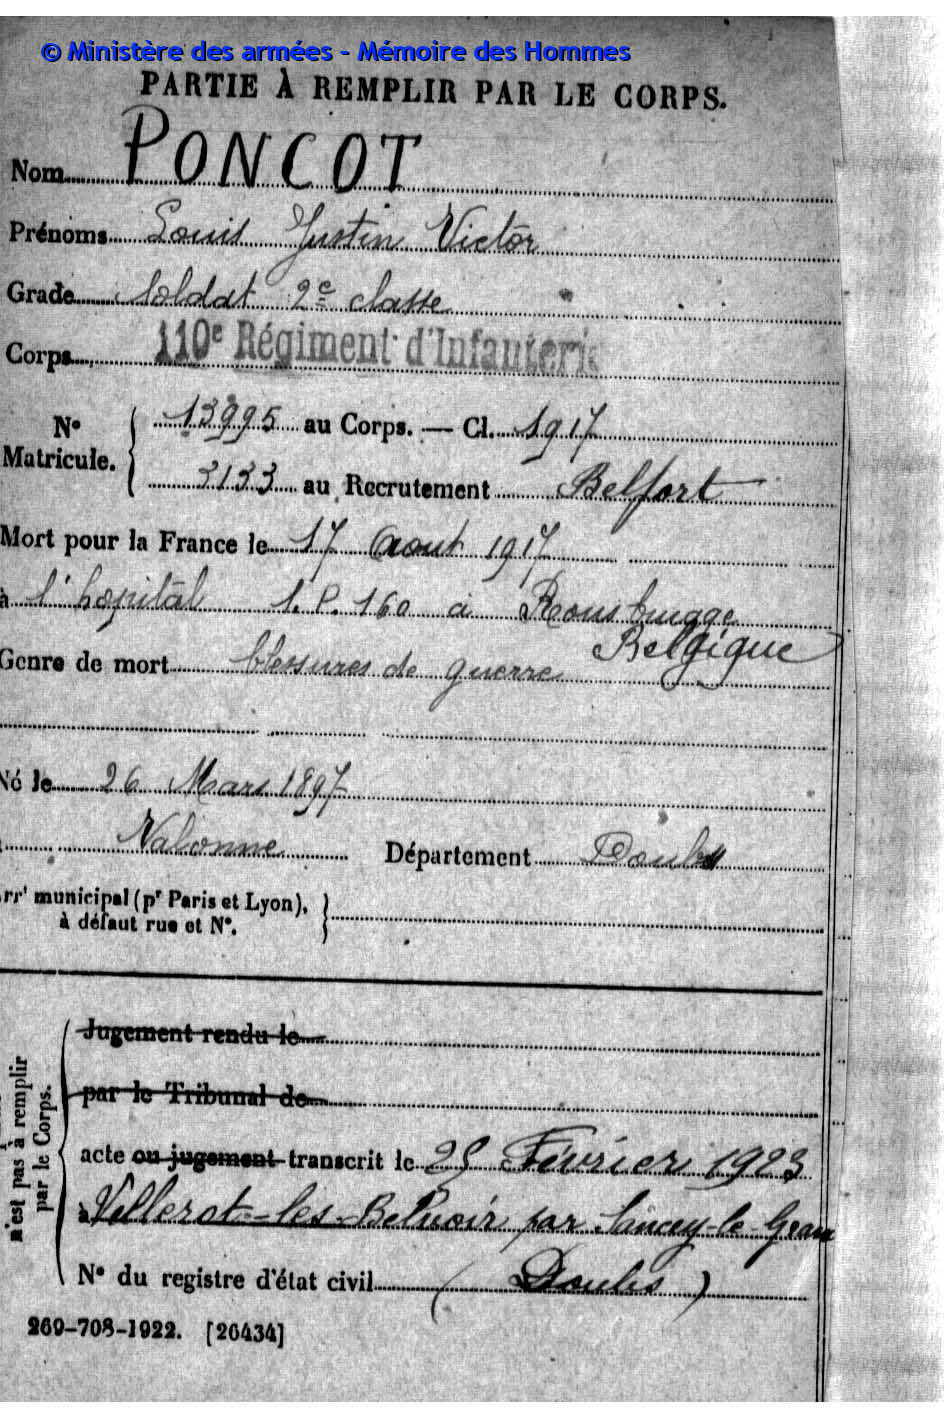 © Ministère des armées - Mémoire des Hommes
PARTIE À REMPLIR PAR LE CORPS.
Nom PONCOT
Prénoms Louis Justin Victor
Grade Soldat 2e classe
Corps 110e Régiment d'Infanterie
No Matricule. 13995 au Corps. — Cl. 1917
3133 au Recrutement Belfort
Mort pour la France le 17 Aout 1917
à l'hopital 1. P. 160 a Rousbrugge
Belgique
Genre de mort blessures de guerre
Né le 26 Mars 1897
Valonne Département Doubs
Arrt municipal (pr Paris et Lyon),
à défaut rue et No.
n'est pas à remplir
par le Corps.
Jugement rendu le
par le Tribunal de
acte ou jugement transcrit le 25 Février 1923
à Vellerot-les-Belvoir par Sancey-le-Gran
No du registre d'état civil ( Doubs )
269-708-1922. [26434]